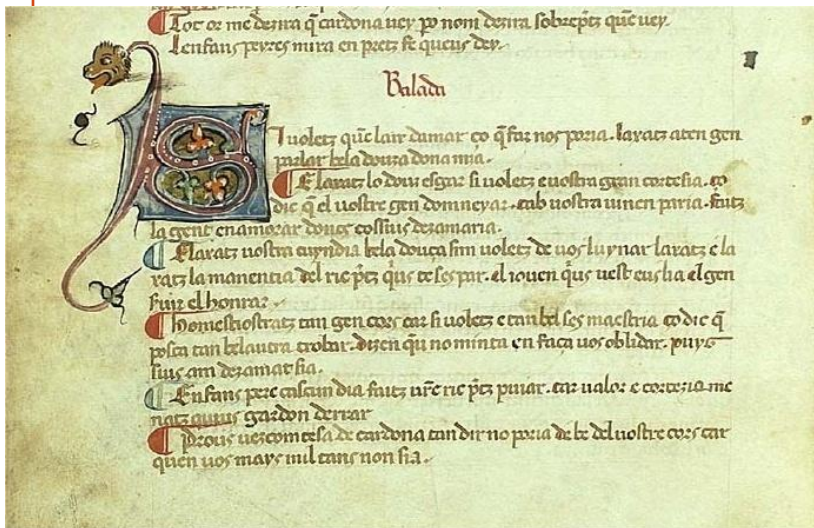 Tot or me dezira q̃ cardona vey po nom dezira sobreptz quẽ vey.
lenfans peyres mira en pretz se queus dey.
Balada
I voletz quẽ lair damar ço q̃ far nos poria. laxatz aten gen
parlar bela douza dona mia.
E laxatz lo douz esgar si voletz e vostra gran cortesia. ço
dic q̃ el vostre gen domneyar. cab vostra vinen paria. faitz
la gent enamorar doncs cossius dezamaria.
E laxatz vostra cuyndia bela douça sim voletz de vos luynar laxatz e la
xatz la manentia del ric p̃tz q̃us te ses par. el ioven q̃us vest eus lia el gen
fuir el honrar.
Nomes tan gen cors car si voletz e tan bel ses maestria ço dic q̃
posca tan bel autra trobar. dizen qu no minta en faça vos oblidar. puys
sius am dezamat sia.
Enfans pere cascun dia faitz vr̃e ric p̃tz puiar. car valor e cortezia me
natz quius gardon derrar
Pros vezcomtesa de cardona tan dir no poria de be del vostre cors car
quen vos mays mil tans non sia.